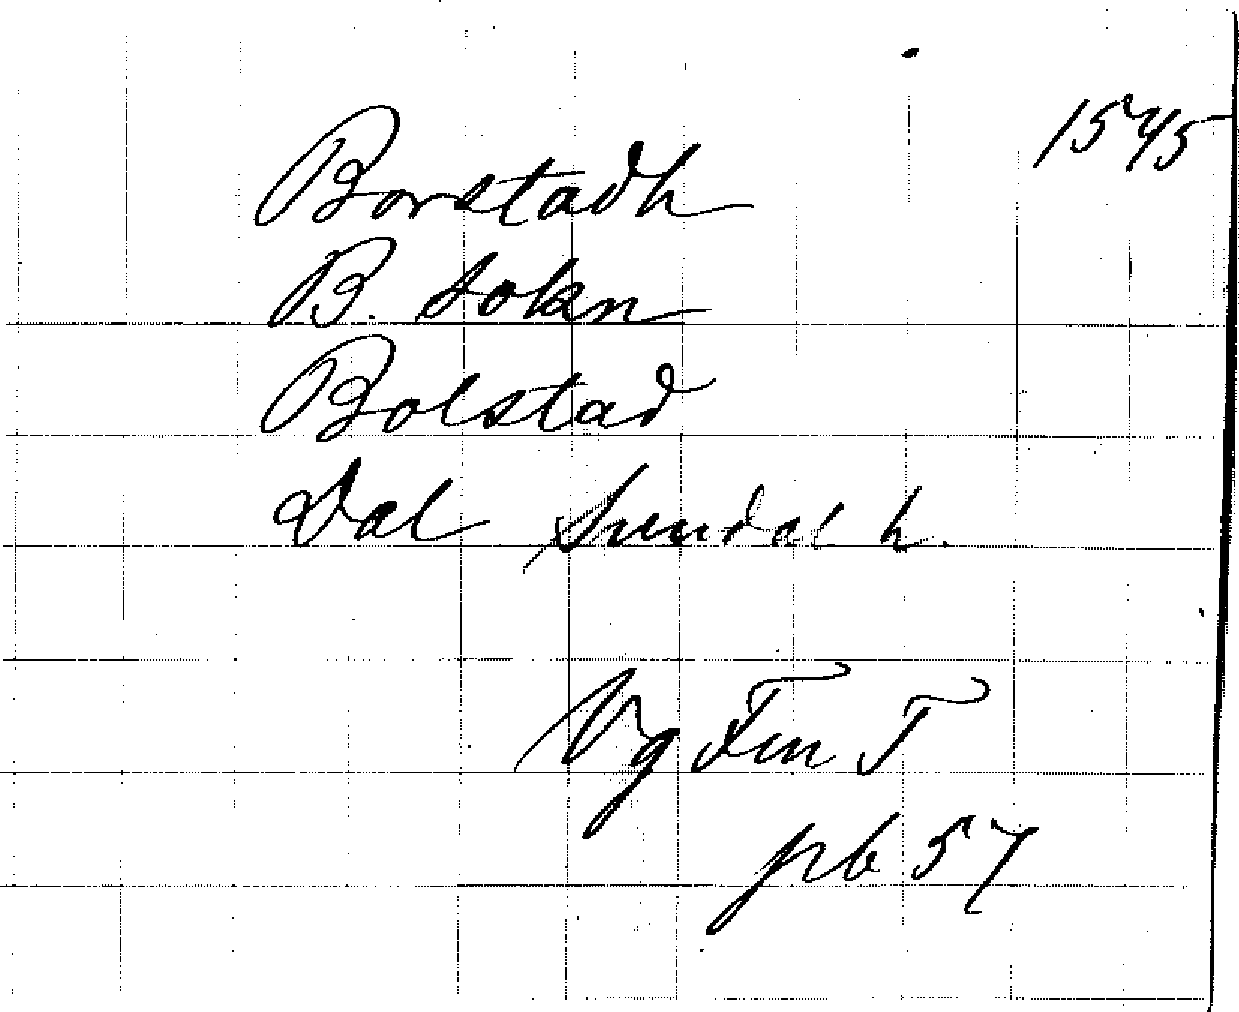 1545
Borstadh
B. sokn
Bolstad
Dal Sundal h.
Vg Fm T
pb 57